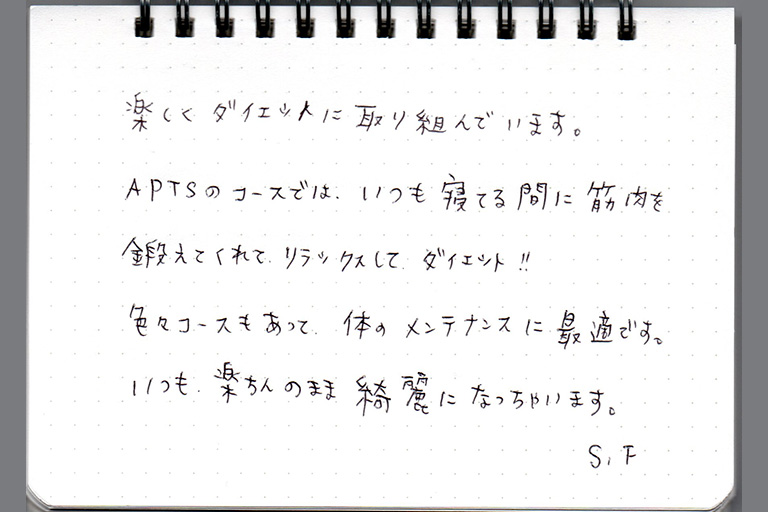 楽しくダイエットに取り組んでいます。
APTSのコースでは、いつも寝てる間に筋肉を
鍛えてくれて、リラックスして、ダイエット!!
色々コースもあって、体のメンテナンスに最適です。
いつも、楽ちんのまま綺麗になっちゃいます。
S.F